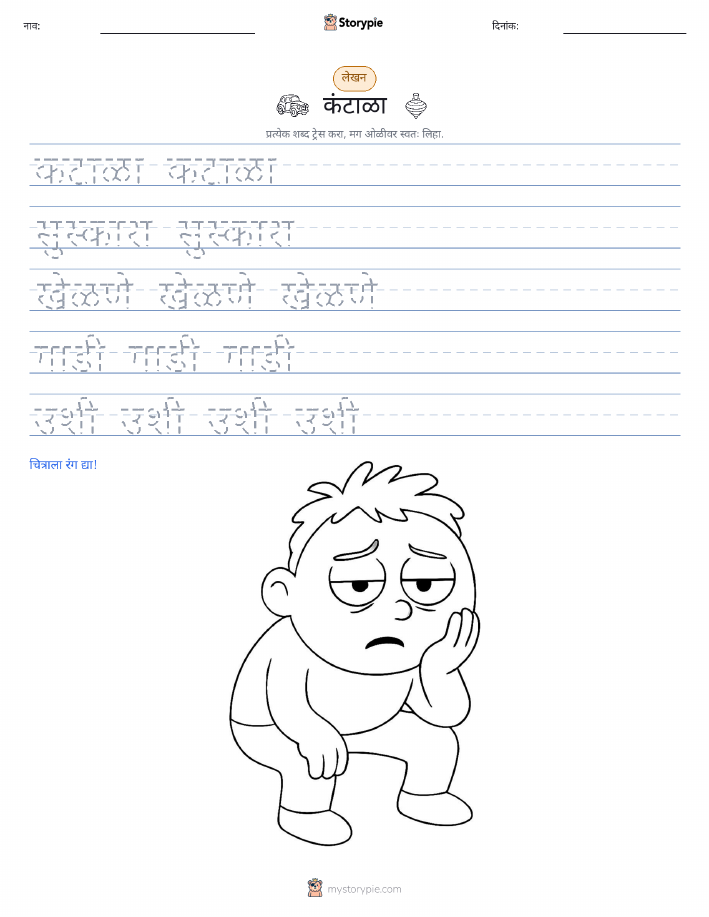 नाव:
Storypie
दिनांक:
लेखन
कंटाळा
प्रत्येक शब्द ट्रेस करा, मग ओळीवर स्वतः लिहा.
कटाळा कटाळा
सुस्कारा सुस्कारा
खेळणे खेळणे खेळणे
गाडी गाडी गाडी
उशी उशी उशी उशी
चित्राला रंग द्या!
mystorypie.com